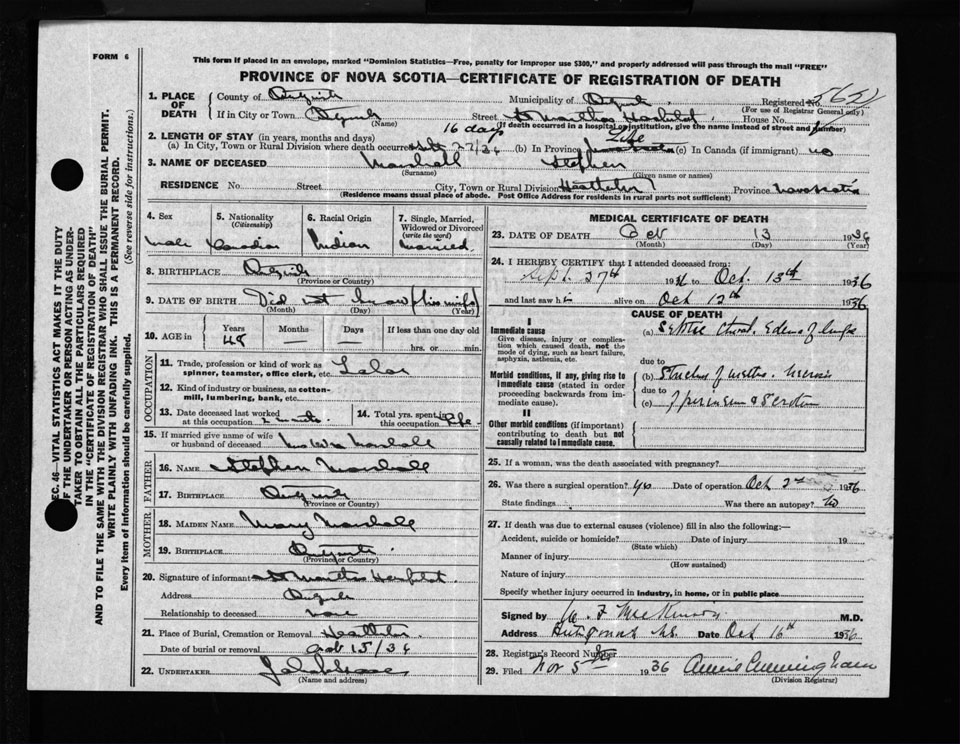 FORM 6
This form if placed in an envelope, marked "Dominion Statistics—Free, penalty for improper use $300," and properly addressed will pass through the mail "FREE"
PROVINCE OF NOVA SCOTIA—CERTIFICATE OF REGISTRATION OF DEATH
1. PLACE OF DEATH
County of
Municipality of
Registered No.
(For use of Registrar General only)
If in City or Town
(Name)
Street St Marthas Hospital House No.
(If death occurred in a hospital or institution, give the name instead of street and number)
2. LENGTH OF STAY (in years, months and days) 16 days Life
(a) In City, Town or Rural Division where death occurred 27/36 (b) In Province (c) In Canada (if immigrant) no
3. NAME OF DECEASED Marshall Stephen
(Surname) (Given name or names)
RESIDENCE No. Street City, Town or Rural Division Heatherton Province Nova Scotia
(Residence means usual place of abode. Post Office Address for residents in rural parts not sufficient)
4. Sex Male
5. Nationality (Citizenship) Canadian
6. Racial Origin Indian
7. Single, Married, Widowed or Divorced (write the word) Married
8. BIRTHPLACE
(Province or Country)
9. DATE OF BIRTH Did not know (his wife)
(Month) (Day) (Year)
10. AGE in Years Months Days If less than one day old
48 — — hrs. or min.
OCCUPATION
11. Trade, profession or kind of work as spinner, teamster, office clerk, etc. Labor
12. Kind of industry or business, as cotton-mill, lumbering, bank, etc.
13. Date deceased last worked at this occupation
14. Total yrs. spent in this occupation Life
15. If married give name of wife or husband of deceased
FATHER
16. NAME Stephen Marshall
17. BIRTHPLACE
(Province or Country)
MOTHER
18. MAIDEN NAME Mary Marshall
19. BIRTHPLACE
(Province or Country)
20. Signature of informant St Marthas Hospital.
Address
Relationship to deceased none
21. Place of Burial, Cremation or Removal Heatherton.
Date of burial or removal 15/36
22. UNDERTAKER
(Name and address)
MEDICAL CERTIFICATE OF DEATH
23. DATE OF DEATH Oct 13 1936
(Month) (Day) (Year)
24. I HEREBY CERTIFY that I attended deceased from:
Sept. 27th 1936 to Oct. 13th 1936
and last saw him alive on Oct 12th 1936
CAUSE OF DEATH
I
Immediate cause
Give disease, injury or complication which caused death, not the mode of dying, such as heart failure, asphyxia, asthenia, etc.
(a) Edema of lungs
due to
Morbid conditions, if any, giving rise to immediate cause (stated in order proceeding backwards from immediate cause).
(b) Stricture of urethra. necrosis
due to
(c) of perineum & scrotum
II
Other morbid conditions (if important) contributing to death but not causally related to immediate cause.
25. If a woman, was the death associated with pregnancy?
26. Was there a surgical operation? yes Date of operation Oct 2nd 1936
State findings Was there an autopsy? no
27. If death was due to external causes (violence) fill in also the following:—
Accident, suicide or homicide? Date of injury 19
(State which)
Manner of injury
(How sustained)
Nature of injury
Specify whether injury occurred in industry, in home, or in public place
Signed by M.D.
Address Antigonish N.S. Date Oct 16th 1936
28. Registrar's Record Number
29. Filed Nov 5 1936 Annie Cunningham
(Division Registrar)
SEC. 46—VITAL STATISTICS ACT MAKES IT THE DUTY
OF THE UNDERTAKER OR PERSON ACTING AS UNDER-
TAKER TO OBTAIN ALL THE PARTICULARS REQUIRED
IN THE "CERTIFICATE OF REGISTRATION OF DEATH"
AND TO FILE THE SAME WITH THE DIVISION REGISTRAR WHO SHALL ISSUE THE BURIAL PERMIT.
WRITE PLAINLY WITH UNFADING INK. THIS IS A PERMANENT RECORD.
Every item of information should be carefully supplied. (See reverse side for instructions.)